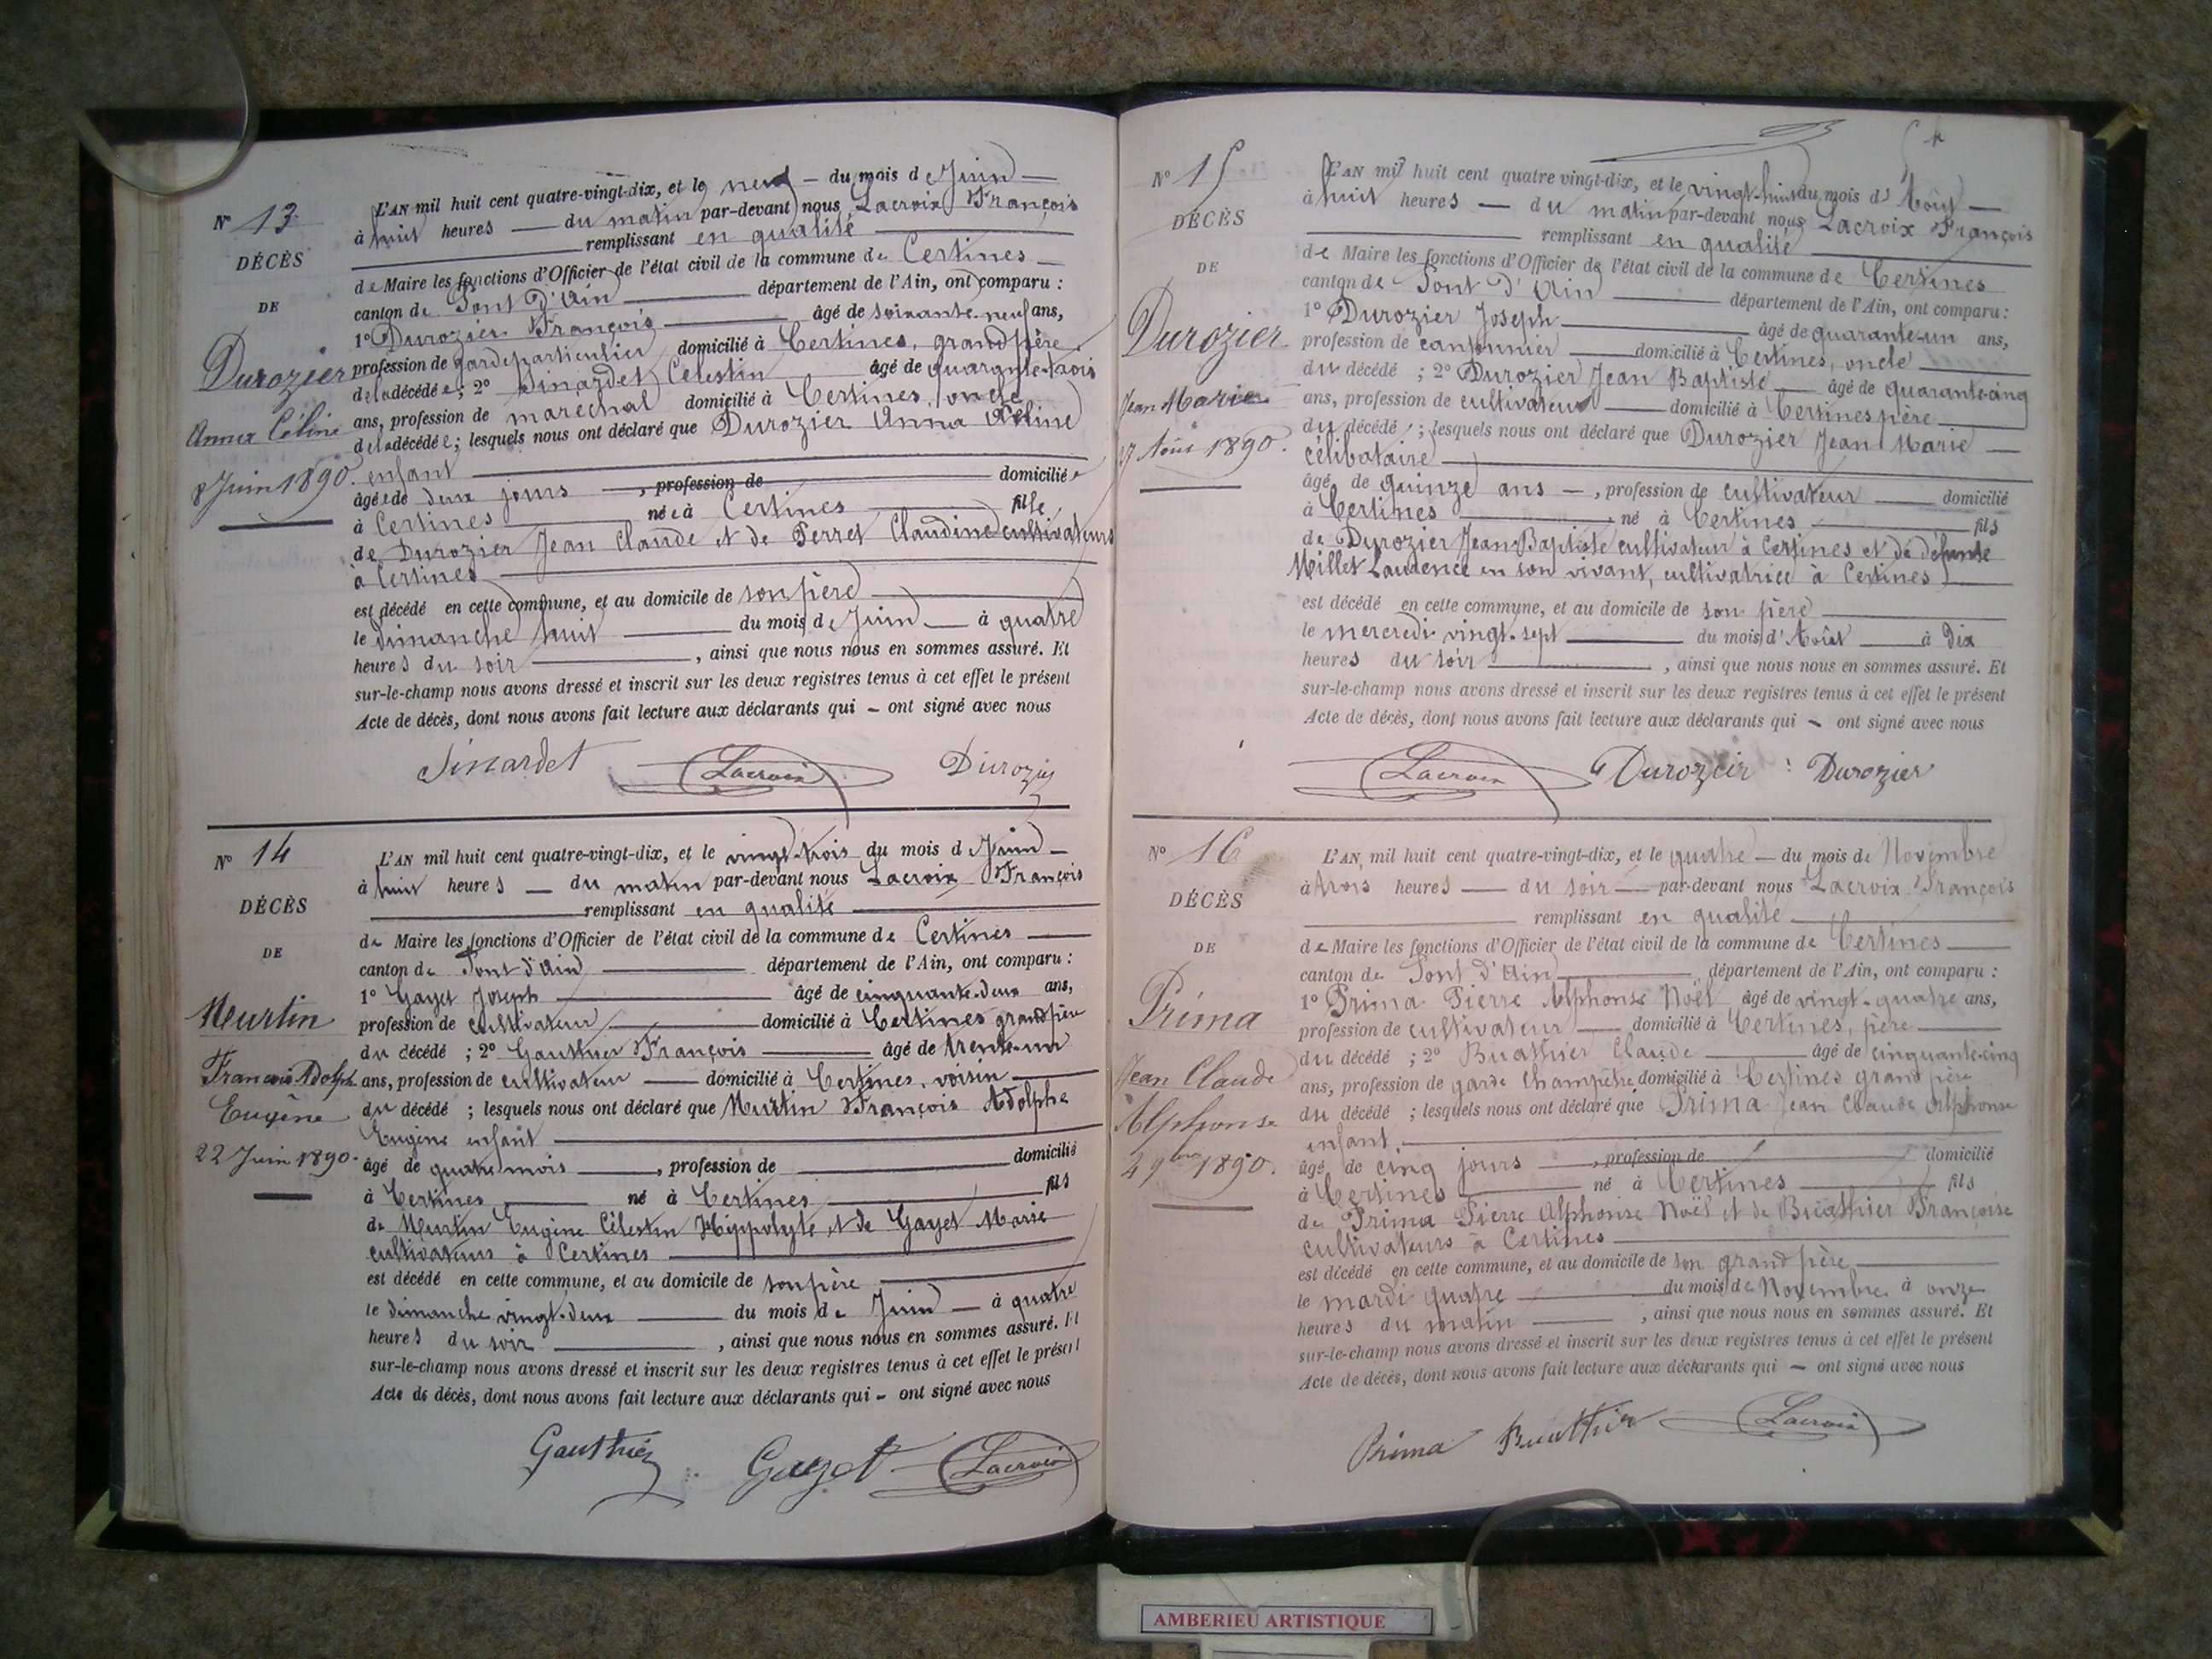 N° 13
DÉCÈS
DE
Durozier
Anna Céline
8 Juin 1890.
L'AN mil huit cent quatre-vingt-dix, et le neuf — du mois de Juin —
à huit heures — du matin par-devant nous Lacroix François
remplissant en qualité
de Maire les fonctions d'Officier de l'état civil de la commune de Certines —
canton de Pont d'Ain département de l'Ain, ont comparu :
1° Durozier François âgé de soixante-neuf ans,
profession de garde particulier domicilié à Certines, grand père
de la décédée; 2° Sinardet Célestin âgé de quarante-trois
ans, profession de maréchal domicilié à Certines, oncle
de la décédée; lesquels nous ont déclaré que Durozier Anna Céline
enfant
âgée de deux jours —, profession de domiciliée
à Certines née à Certines fille
de Durozier Jean Claude et de Perret Claudine cultivateurs
à Certines
est décédé en cette commune, et au domicile de son père
le Dimanche huit du mois de Juin — à quatre
heures du soir , ainsi que nous nous en sommes assuré. Et
sur-le-champ nous avons dressé et inscrit sur les deux registres tenus à cet effet le présent
Acte de décès, dont nous avons fait lecture aux déclarants qui — ont signé avec nous
Sinardet Lacroix Durozier
N° 14
DÉCÈS
DE
Murtin
François Adolphe
Eugène
22 Juin 1890.
L'AN mil huit cent quatre-vingt-dix, et le vingt-trois du mois de Juin —
à huit heures — du matin par-devant nous Lacroix François
remplissant en qualité
de Maire les fonctions d'Officier de l'état civil de la commune de Certines
canton de Pont d'Ain département de l'Ain, ont comparu :
1° Gayet Joseph âgé de cinquante-deux ans,
profession de cultivateur domicilié à Certines grand père
du décédé ; 2° Gauthier François âgé de trente-un
ans, profession de cultivateur domicilié à Certines, voisin
du décédé ; lesquels nous ont déclaré que Murtin François Adolphe
Eugène enfant
âgé de quatre mois , profession de domicilié
à Certines né à Certines fils
de Murtin Eugène Célestin Hippolyte et de Gayet Marie
cultivateurs à Certines
est décédé en cette commune, et au domicile de son père
le dimanche vingt-deux du mois de Juin — à quatre
heures du soir , ainsi que nous nous en sommes assuré. Et
sur-le-champ nous avons dressé et inscrit sur les deux registres tenus à cet effet le présent
Acte de décès, dont nous avons fait lecture aux déclarants qui — ont signé avec nous
Gauthier Gayet Lacroix
N° 15
DÉCÈS
DE
Durozier
Jean Marie
27 Août 1890.
L'AN mil huit cent quatre vingt-dix, et le vingt-huit du mois d'Août —
à huit heures — du matin par-devant nous Lacroix François
remplissant en qualité
de Maire les fonctions d'Officier de l'état civil de la commune de Certines
canton de Pont d'Ain département de l'Ain, ont comparu :
1° Durozier Joseph âgé de quarante-un ans,
profession de cantonnier domicilié à Certines, oncle
du décédé ; 2° Durozier Jean Baptiste âgé de quarante-cinq
ans, profession de cultivateur domicilié à Certines père
du décédé ; lesquels nous ont déclaré que Durozier Jean Marie —
célibataire
âgé de quinze ans —, profession de cultivateur domicilié
à Certines né à Certines fils
de Durozier Jean Baptiste cultivateur à Certines et de défunte
Millet Laurence en son vivant, cultivatrice à Certines
est décédé en cette commune, et au domicile de son père
le mercredi vingt-sept du mois d'Août à dix
heures du soir , ainsi que nous nous en sommes assuré. Et
sur-le-champ nous avons dressé et inscrit sur les deux registres tenus à cet effet le présent
Acte de décès, dont nous avons fait lecture aux déclarants qui — ont signé avec nous
Lacroix Durozier Durozier
N° 16
DÉCÈS
DE
Prima
Jean Claude
Alphonse
4 9bre 1890.
L'AN mil huit cent quatre-vingt-dix, et le quatre — du mois de Novembre
à trois heures — du soir — par-devant nous Lacroix François
remplissant en qualité
de Maire les fonctions d'Officier de l'état civil de la commune de Certines
canton de Pont d'Ain département de l'Ain, ont comparu :
1° Prima Pierre Alphonse Noël âgé de vingt-quatre ans,
profession de cultivateur domicilié à Certines, père
du décédé ; 2° Buathier Claude âgé de cinquante-cinq
ans, profession de garde champêtre domicilié à Certines grand père
du décédé ; lesquels nous ont déclaré que Prima Jean Claude Alphonse
enfant
âgé de cinq jours , profession de domicilié
à Certines né à Certines fils
de Prima Pierre Alphonse Noël et de Buathier Françoise
cultivateurs à Certines
est décédé en cette commune, et au domicile de son grand père
le mardi quatre du mois de Novembre à onze
heures du matin , ainsi que nous nous en sommes assuré. Et
sur-le-champ nous avons dressé et inscrit sur les deux registres tenus à cet effet le présent
Acte de décès, dont nous avons fait lecture aux déclarants qui — ont signé avec nous
Prima Buathier Lacroix
AMBERIEU ARTISTIQUE